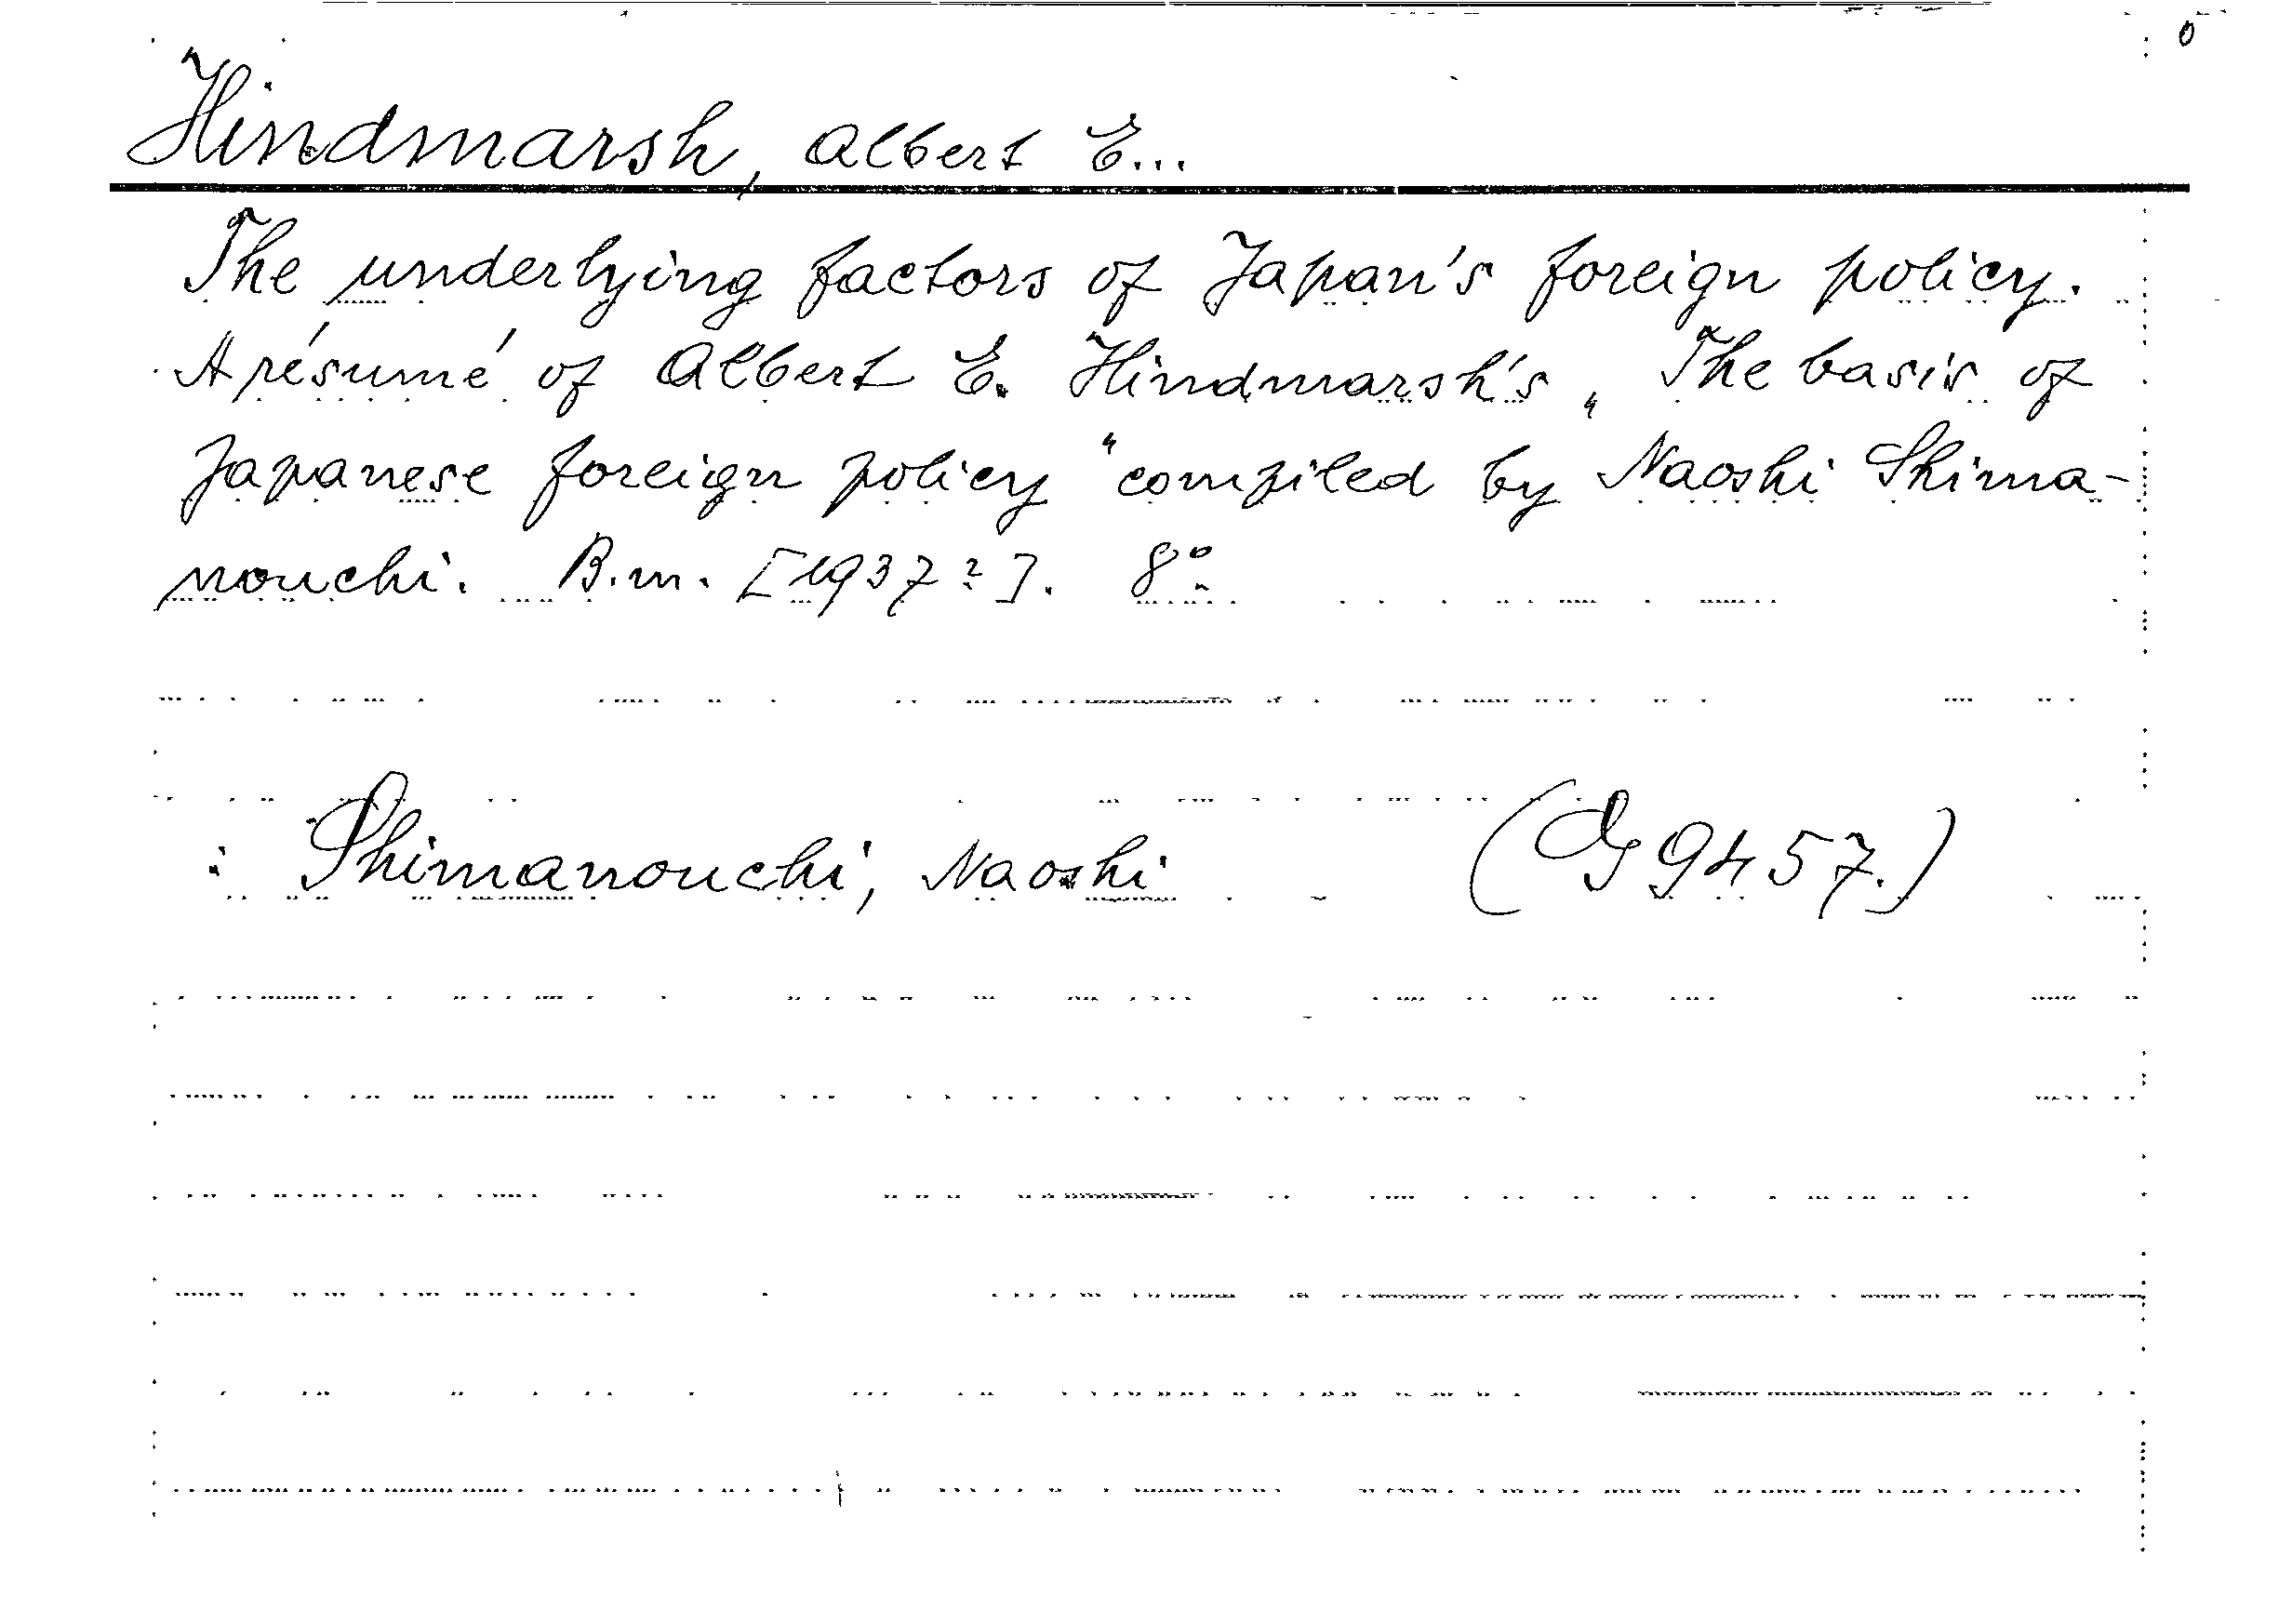 0
Hindmarsh, Albert E...
The underlying factors of Japan's foreign policy.
A résumé of Albert E. Hindmarsh's „The basis of
Japanese foreign policy“ compiled by Naoshi Shima-
nouchi. B.m. [1937?]. 8°
: Shimanouchi, Naoshi (Dg 9457.)